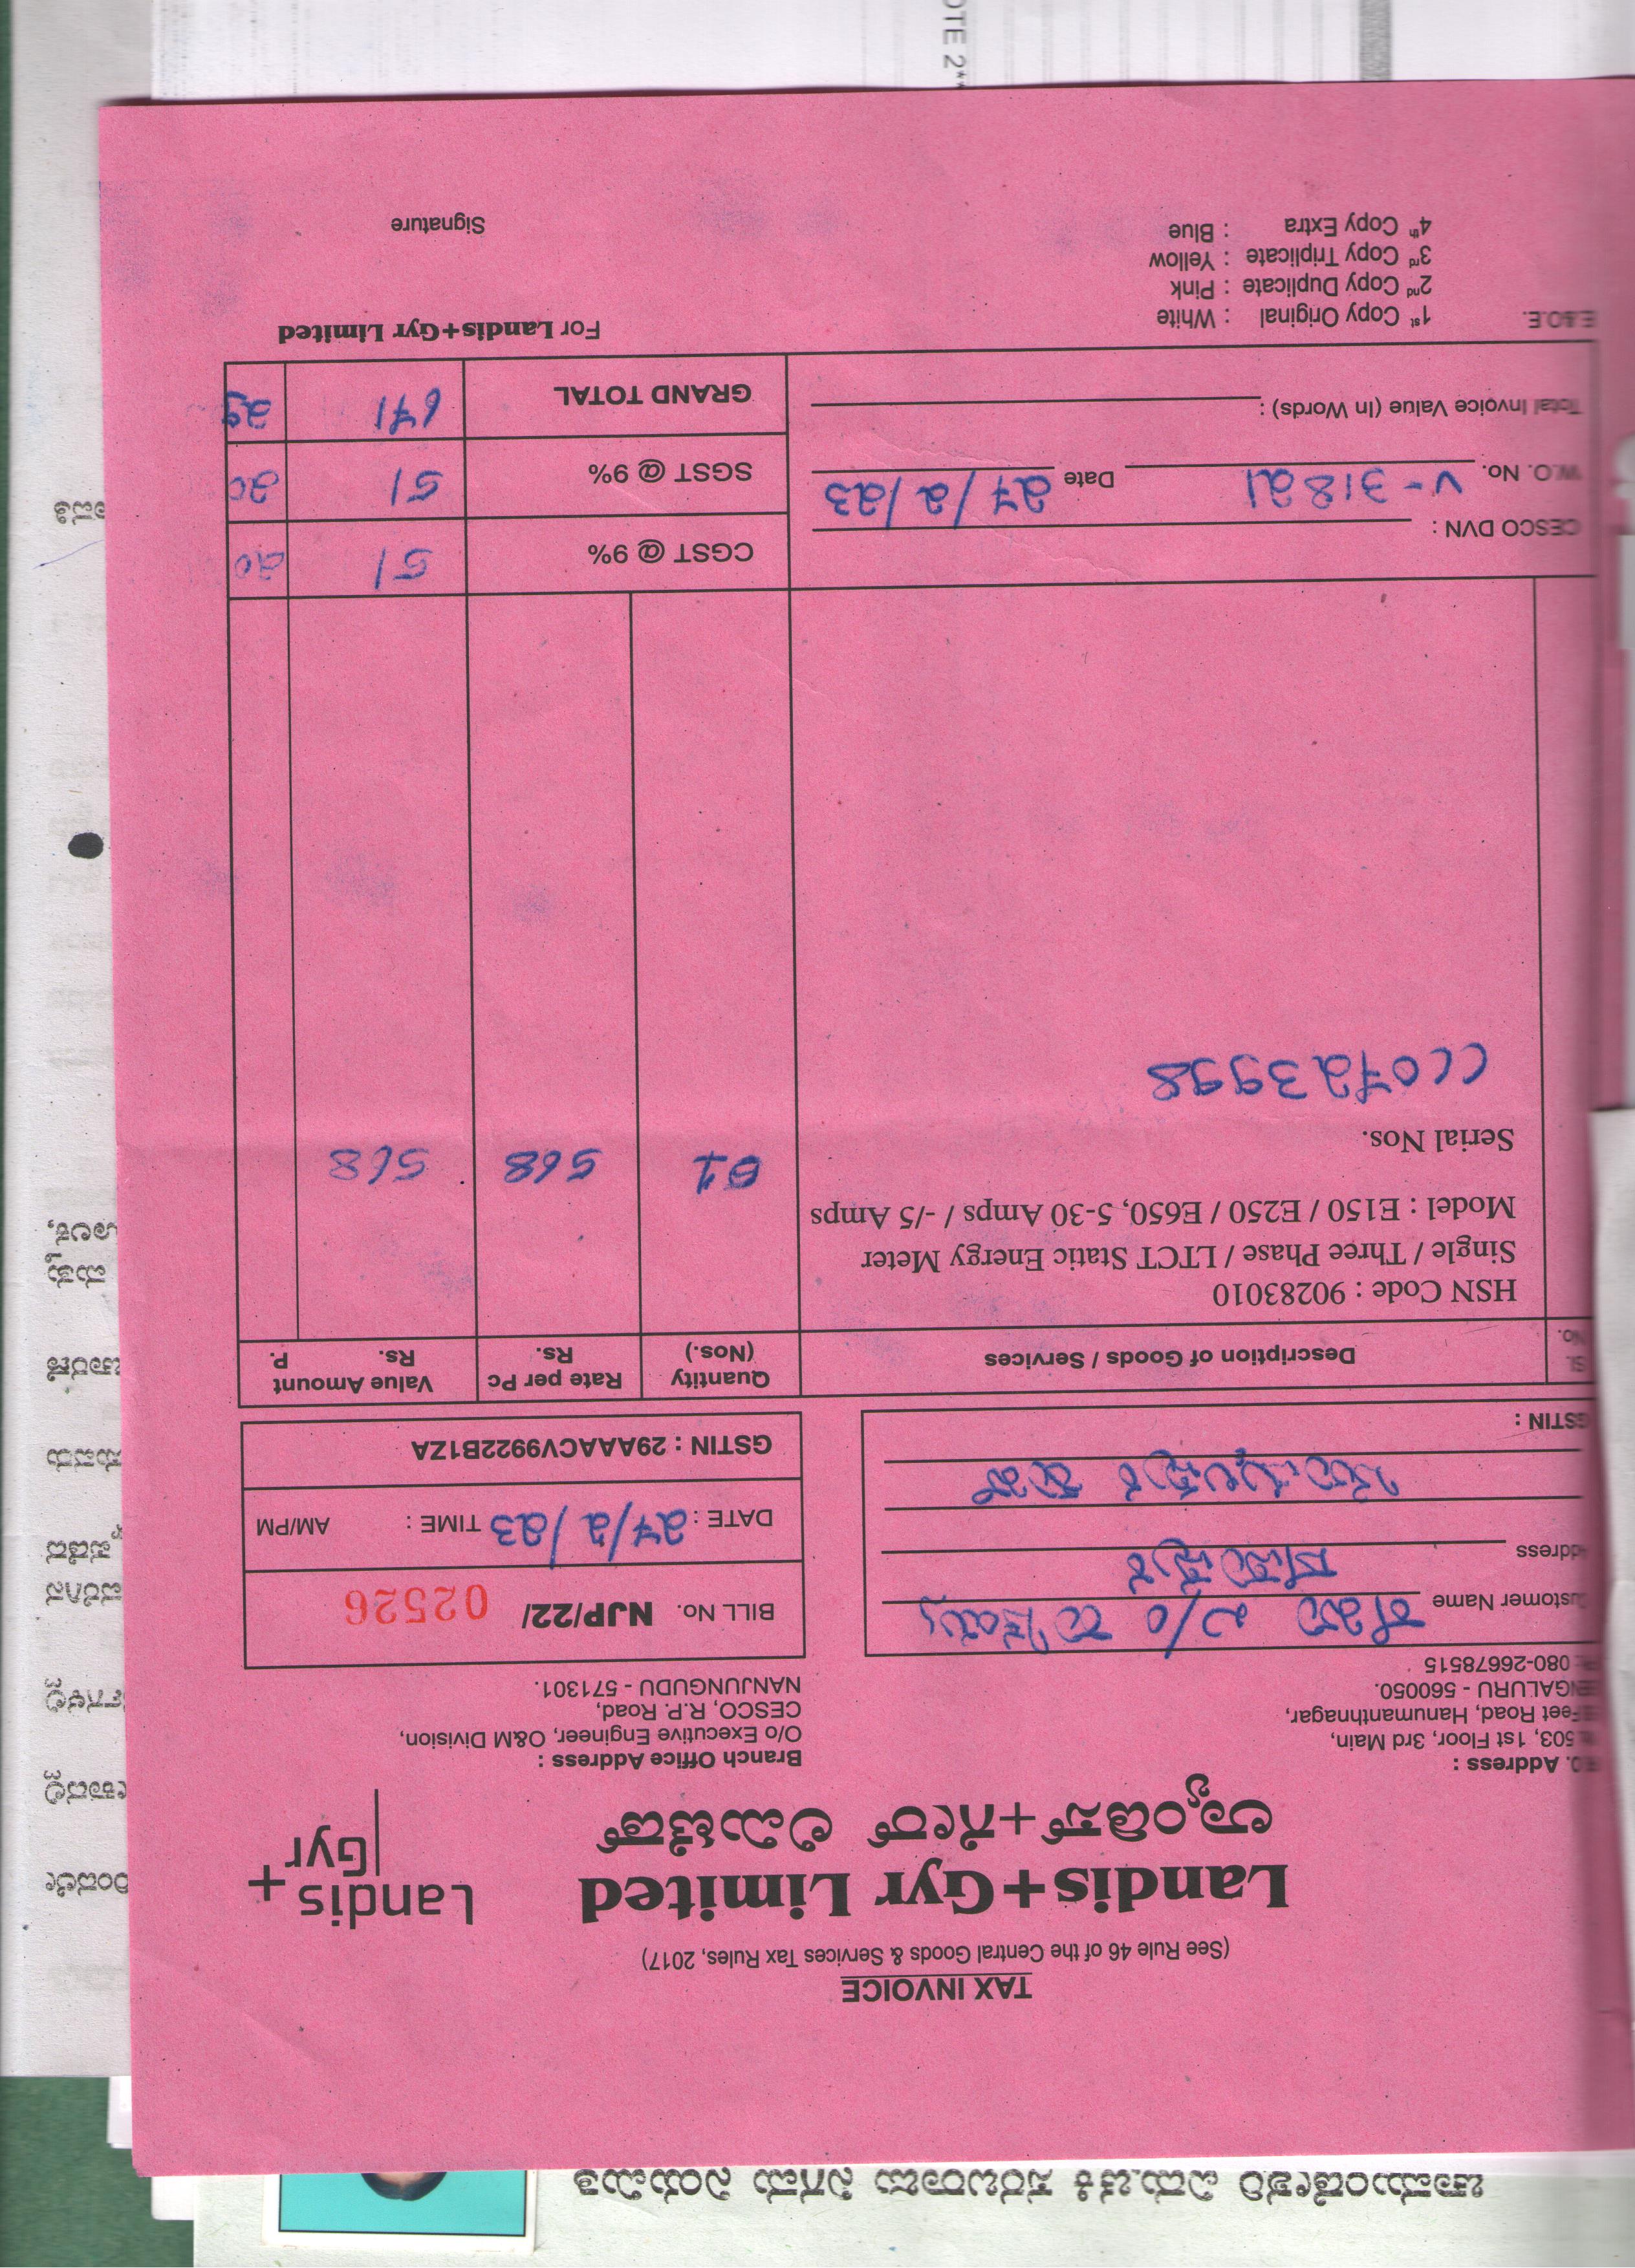 TAX INVOICE
(See Rule 46 of the Central Goods & Services Tax Rules, 2017)
Landis+Gyr Limited
ಲ್ಯಾಂಡಿಸ್+ಗೇರ್ ಲಿಮಿಟೆಡ್
Landis
Gyr
+
Address :
503, 1st Floor, 3rd Main,
Feet Road, Hanumanthnagar,
BENGALURU - 560050.
080-26678515
Branch Office Address :
O/o Executive Engineer, O&M Division,
CESCO, R.P. Road,
NANJUNGUDU - 571301.
Customer Name
Address
GSTIN :
BILL No. NJP/22/ 02526
DATE : 27/2/23 TIME : AM/PM
GSTIN : 29AAACV9922B1ZA
Sl. No. Description of Goods / Services Quantity (Nos.) Rate per Pc Rs. Value Amount Rs. P.
HSN Code : 90283010
Single / Three Phase / LTCT Static Energy Meter
Model : E150 / E250 / E650, 5-30 Amps / -/5 Amps
01 568 568
Serial Nos.
CC0723998
CESCO DVN :
CGST @ 9% 51 20
W.O. No. V-31821 Date 27/2/23
SGST @ 9% 51 20
Total Invoice Value (In Words) :
GRAND TOTAL 671 25
E.&O.E.
For Landis+Gyr Limited
1st Copy Original : White
2nd Copy Duplicate : Pink
3rd Copy Triplicate : Yellow
4th Copy Extra : Blue
Signature